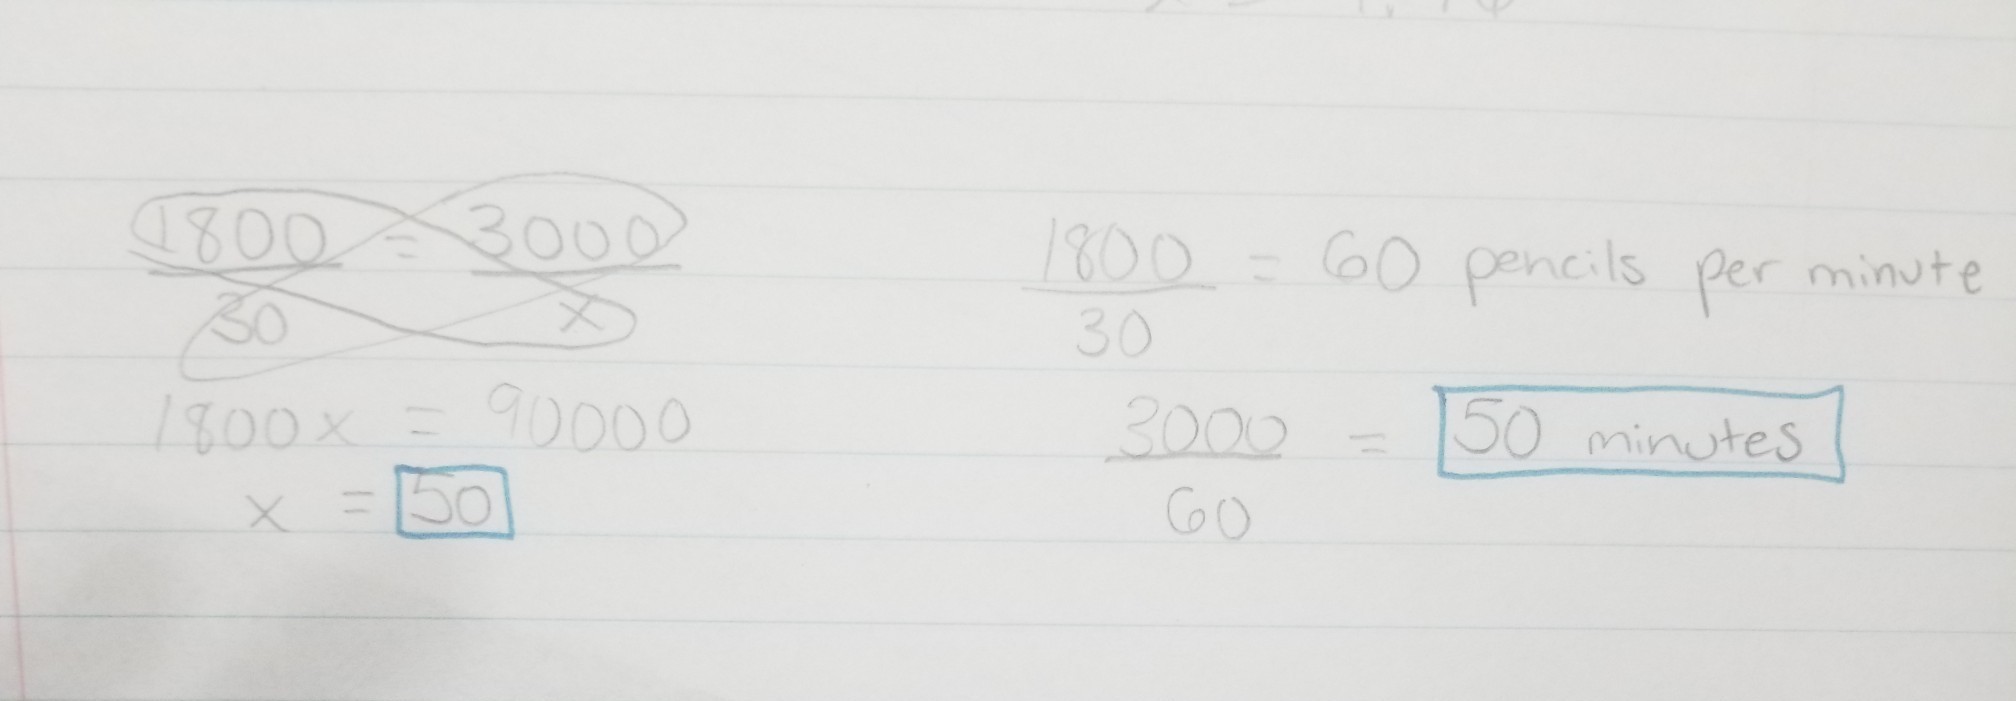 1800 = 3000
30 x
1800x = 90000
x = 50
1800 = 60 pencils per minute
30
3000 = 50 minutes
60